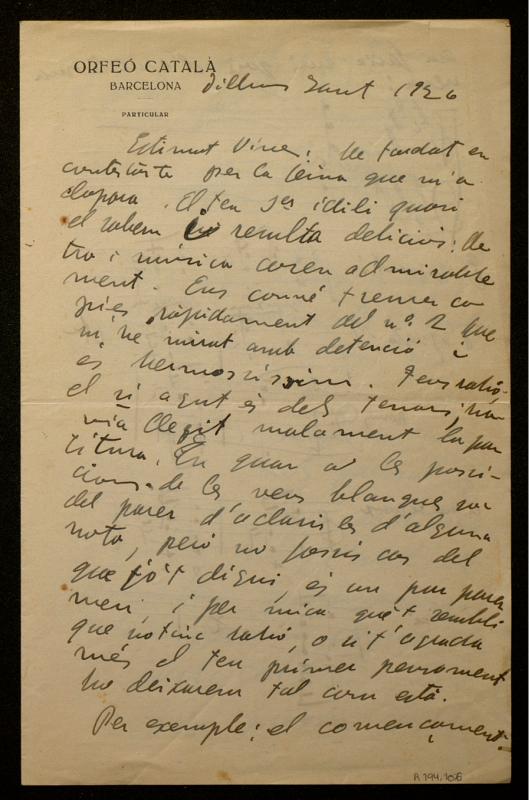 ORFEÓ CATALÀ
BARCELONA
PARTICULAR
Dilluns Sant 1926
Estimat Vives: He tardat en
contestarte per la feina que m'a
clapora. El teu 3er idili quasi
el sabem i resulta deliciós: lle
tra i música coren admirable
ment. Ens convé treurer co
pies ràpidament del nº 2 que
m, he mirat amb detenció i
és hermosíssim. Tens rahó,
el si agut és dels tenors; ha
via llegit malament la par
titura. En quan a les posi
cions de les veus blanques soc
del parer d'aclarir les d'alguna
nota, però no fassis cas del
que jo't digui, és un pur parer
meu, i per mica que't sembli
que no tinc rahó, o si t'agrada
més el teu primer pensament
ho deixarem tal com està.
Per exemple: el començament
R 794.1056